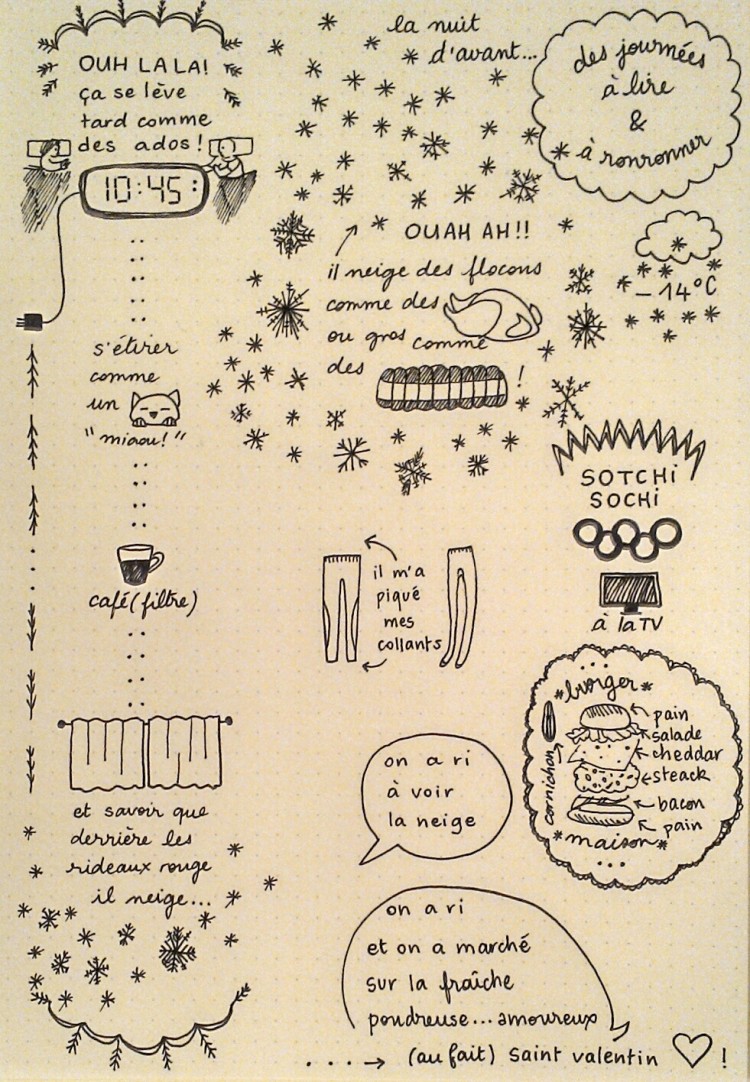 OUH LA LA!
ça se lève
tard comme
des ados!
10:45:
s'étirer
comme
un
"miaou!"
café (filtre)
et savoir que
derrière les
rideaux rouge
il neige...
la nuit
d'avant...
OUAH AH!!
il neige des flocons
comme des
ou gros comme
des !
des journées
à lire
&
à ronronner
-14°C
SOTCHI
SOCHI
à la TV
il m'a
piqué
mes
collants
*burger*
pain
salade
cheddar
steack
bacon
pain
cornichon
*maison*
...
on a ri
à voir
la neige
on a ri
et on a marché
sur la fraîche
poudreuse... amoureux
....→ (au fait) Saint valentin ♡!